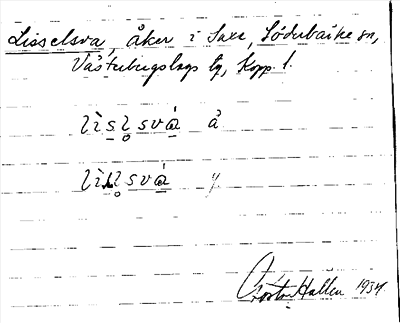 Lisselsva, åker i Saxe, Söderbärke sn,
Västerbergslags bg, Kopp. l.
lìsl̥svá å
lìl̥svá y
Gösta Hallén 1934